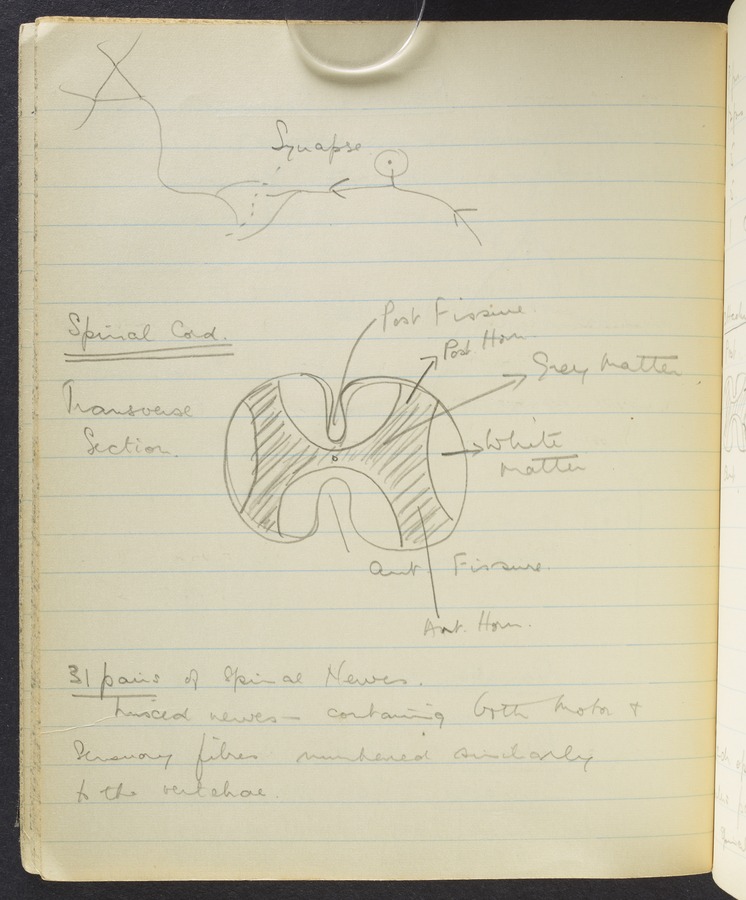 Synapse
Spinal Cord.
Post Fissure.
Post Horn
Grey Matter
Transverse
Section.
White
Matter
Ant Fissure.
Ant. Horn.
31 pairs of Spinal Nerves.
Mixed nerves - containing both Motor &
Sensory fibres numbered similarly
to the vertebrae.